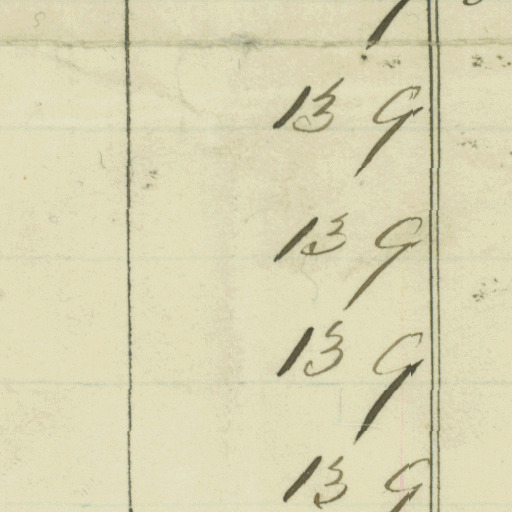 13 9
13 9
13 9
13 9